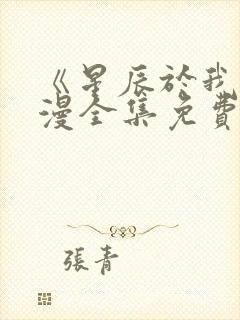 《星辰於我
漫全集免費
張青